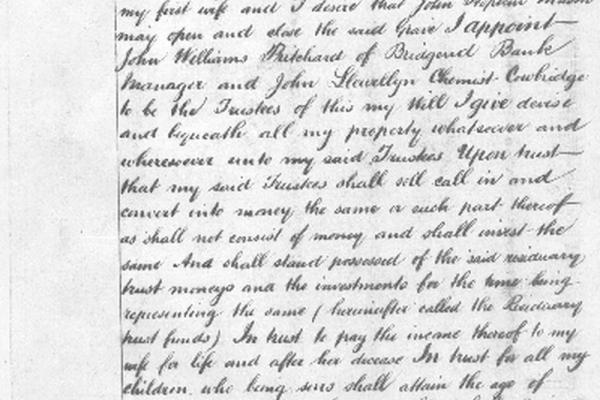 my first wife and I desire that John Hopkin
may open and close the said Grave I appoint
John Williams Pritchard of Bridgend Bank
Manager and John Llewellyn Chemist Cowbridge
to be the Trustees of this my Will I give devise
and bequeath all my property whatsoever and
wheresoever unto my said Trustees Upon trust
that my said Trustees shall sell call in and
convert into money the same or such part thereof
as shall not consist of money and shall invest the
same And shall stand possessed of the said residuary
trust moneys and the investments for the time being
representing the same (hereinafter called the Residuary
trust funds) In trust to pay the income thereof to my
wife for life and after her decease In trust for all my
children who being sons shall attain the age of